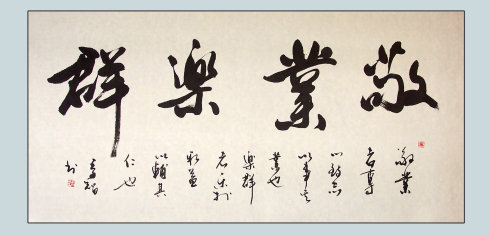 敬業樂群
敬業
者專
心致志
以事其
業也
樂群
者乐於
取益
以輔其
仁也
书